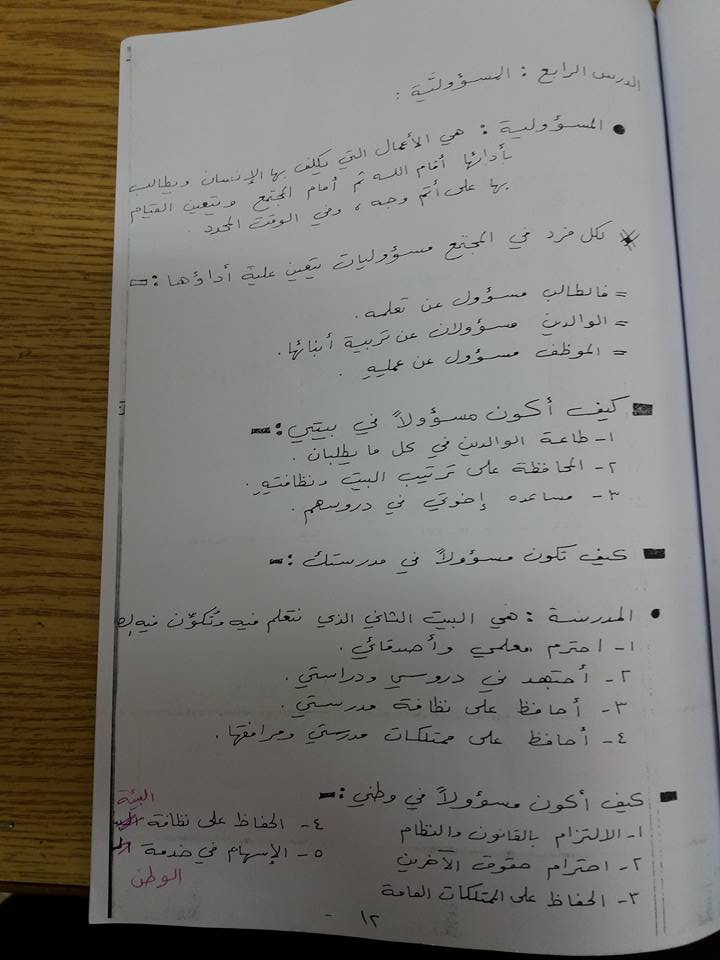 الدرس الرابع : المسؤولية :
● المسؤولية : هي الأعمال التي يكلف بها الإنسان ويطالب
بأدائها أمام الله ثم أمام المجتمع ويتعين القيام
بها على أتم وجه ، وفي الوقت المحدد .
* لكل فرد في المجتمع مسؤوليات يتعين علية أداؤها :-
= فالطالب مسؤول عن تعلمه .
= الوالدين مسؤولان عن تربية أبنائها .
= الموظف مسؤول عن عمله .
كيف أكون مسؤولاً في بيتي :-
١- طاعة الوالدين في كل ما يطلبان .
٢- المحافظة على ترتيب البيت ونظافته .
٣- مساعده إخوتي في دروسهم .
كيف تكون مسؤولاً في مدرستك :-
● المدرسة : هي البيت الثاني الذي نتعلم فيه ونُكوّن فيه
١- احترم معلمي وأصدقائي .
٢- أجتهد في دروسي ودراستي .
٣- أحافظ على نظافة مدرستي .
٤- أحافظ على ممتلكات مدرستي ومرافقها .
كيف أكون مسؤولاً في وطني :-
١- الالتزام بالقانون والنظام
٢- احترام حقوق الآخرين
٣- الحفاظ على الممتلكات العامة
٤- الحفاظ على نظافة
البيئة
٥- الإسهام في خدمة
الوطن
١٢